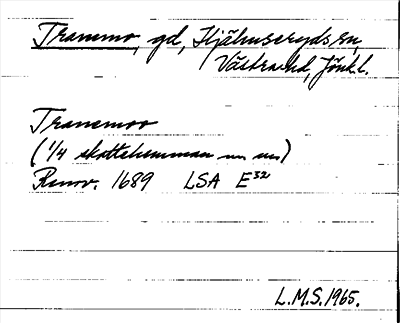 Tranemo, gd, Hjälmseryds sn,
Västra hd, Jönk.l.
Tranemoo
(1/4 skattehemman
Renov. 1689 LSA E32
L.M.S. 1965.